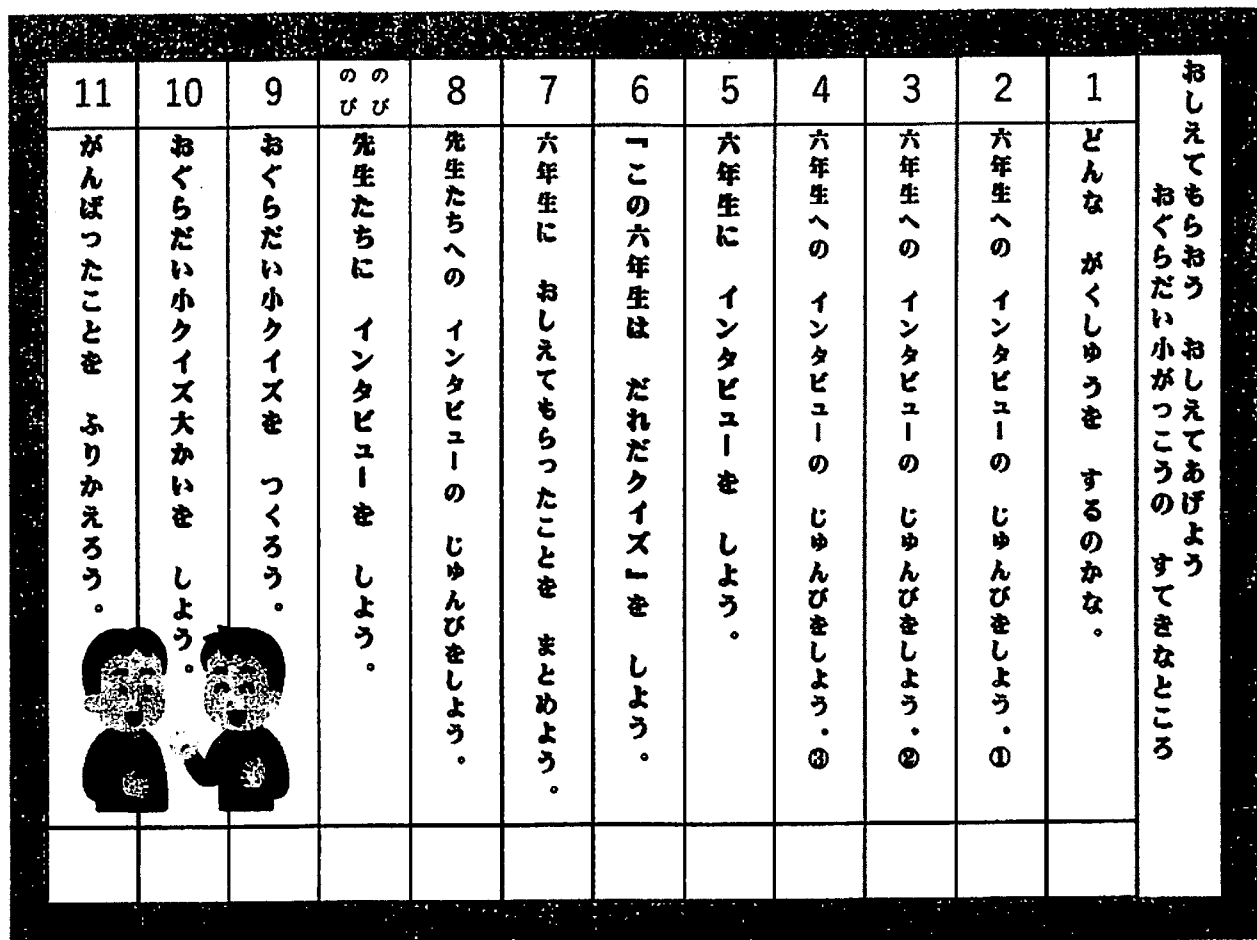 おしえてもらおう　おしえてあげよう
おぐらだい小がっこうの　すてきなところ
1
どんな　がくしゅうを　するのかな。
2
六年生への　インタビューの　じゅんびをしよう。①
3
六年生への　インタビューの　じゅんびをしよう。②
4
六年生への　インタビューの　じゅんびをしよう。③
5
六年生に　インタビューを　しよう。
6
「この六年生は　だれだクイズ」を　しよう。
7
六年生に　おしえてもらったことを　まとめよう。
8
先生たちへの　インタビューの　じゅんびをしよう。
のび
のび
先生たちに　インタビューを　しよう。
9
おぐらだい小クイズを　つくろう。
10
おぐらだい小クイズ大かいを　しよう。
11
がんばったことを　ふりかえろう。